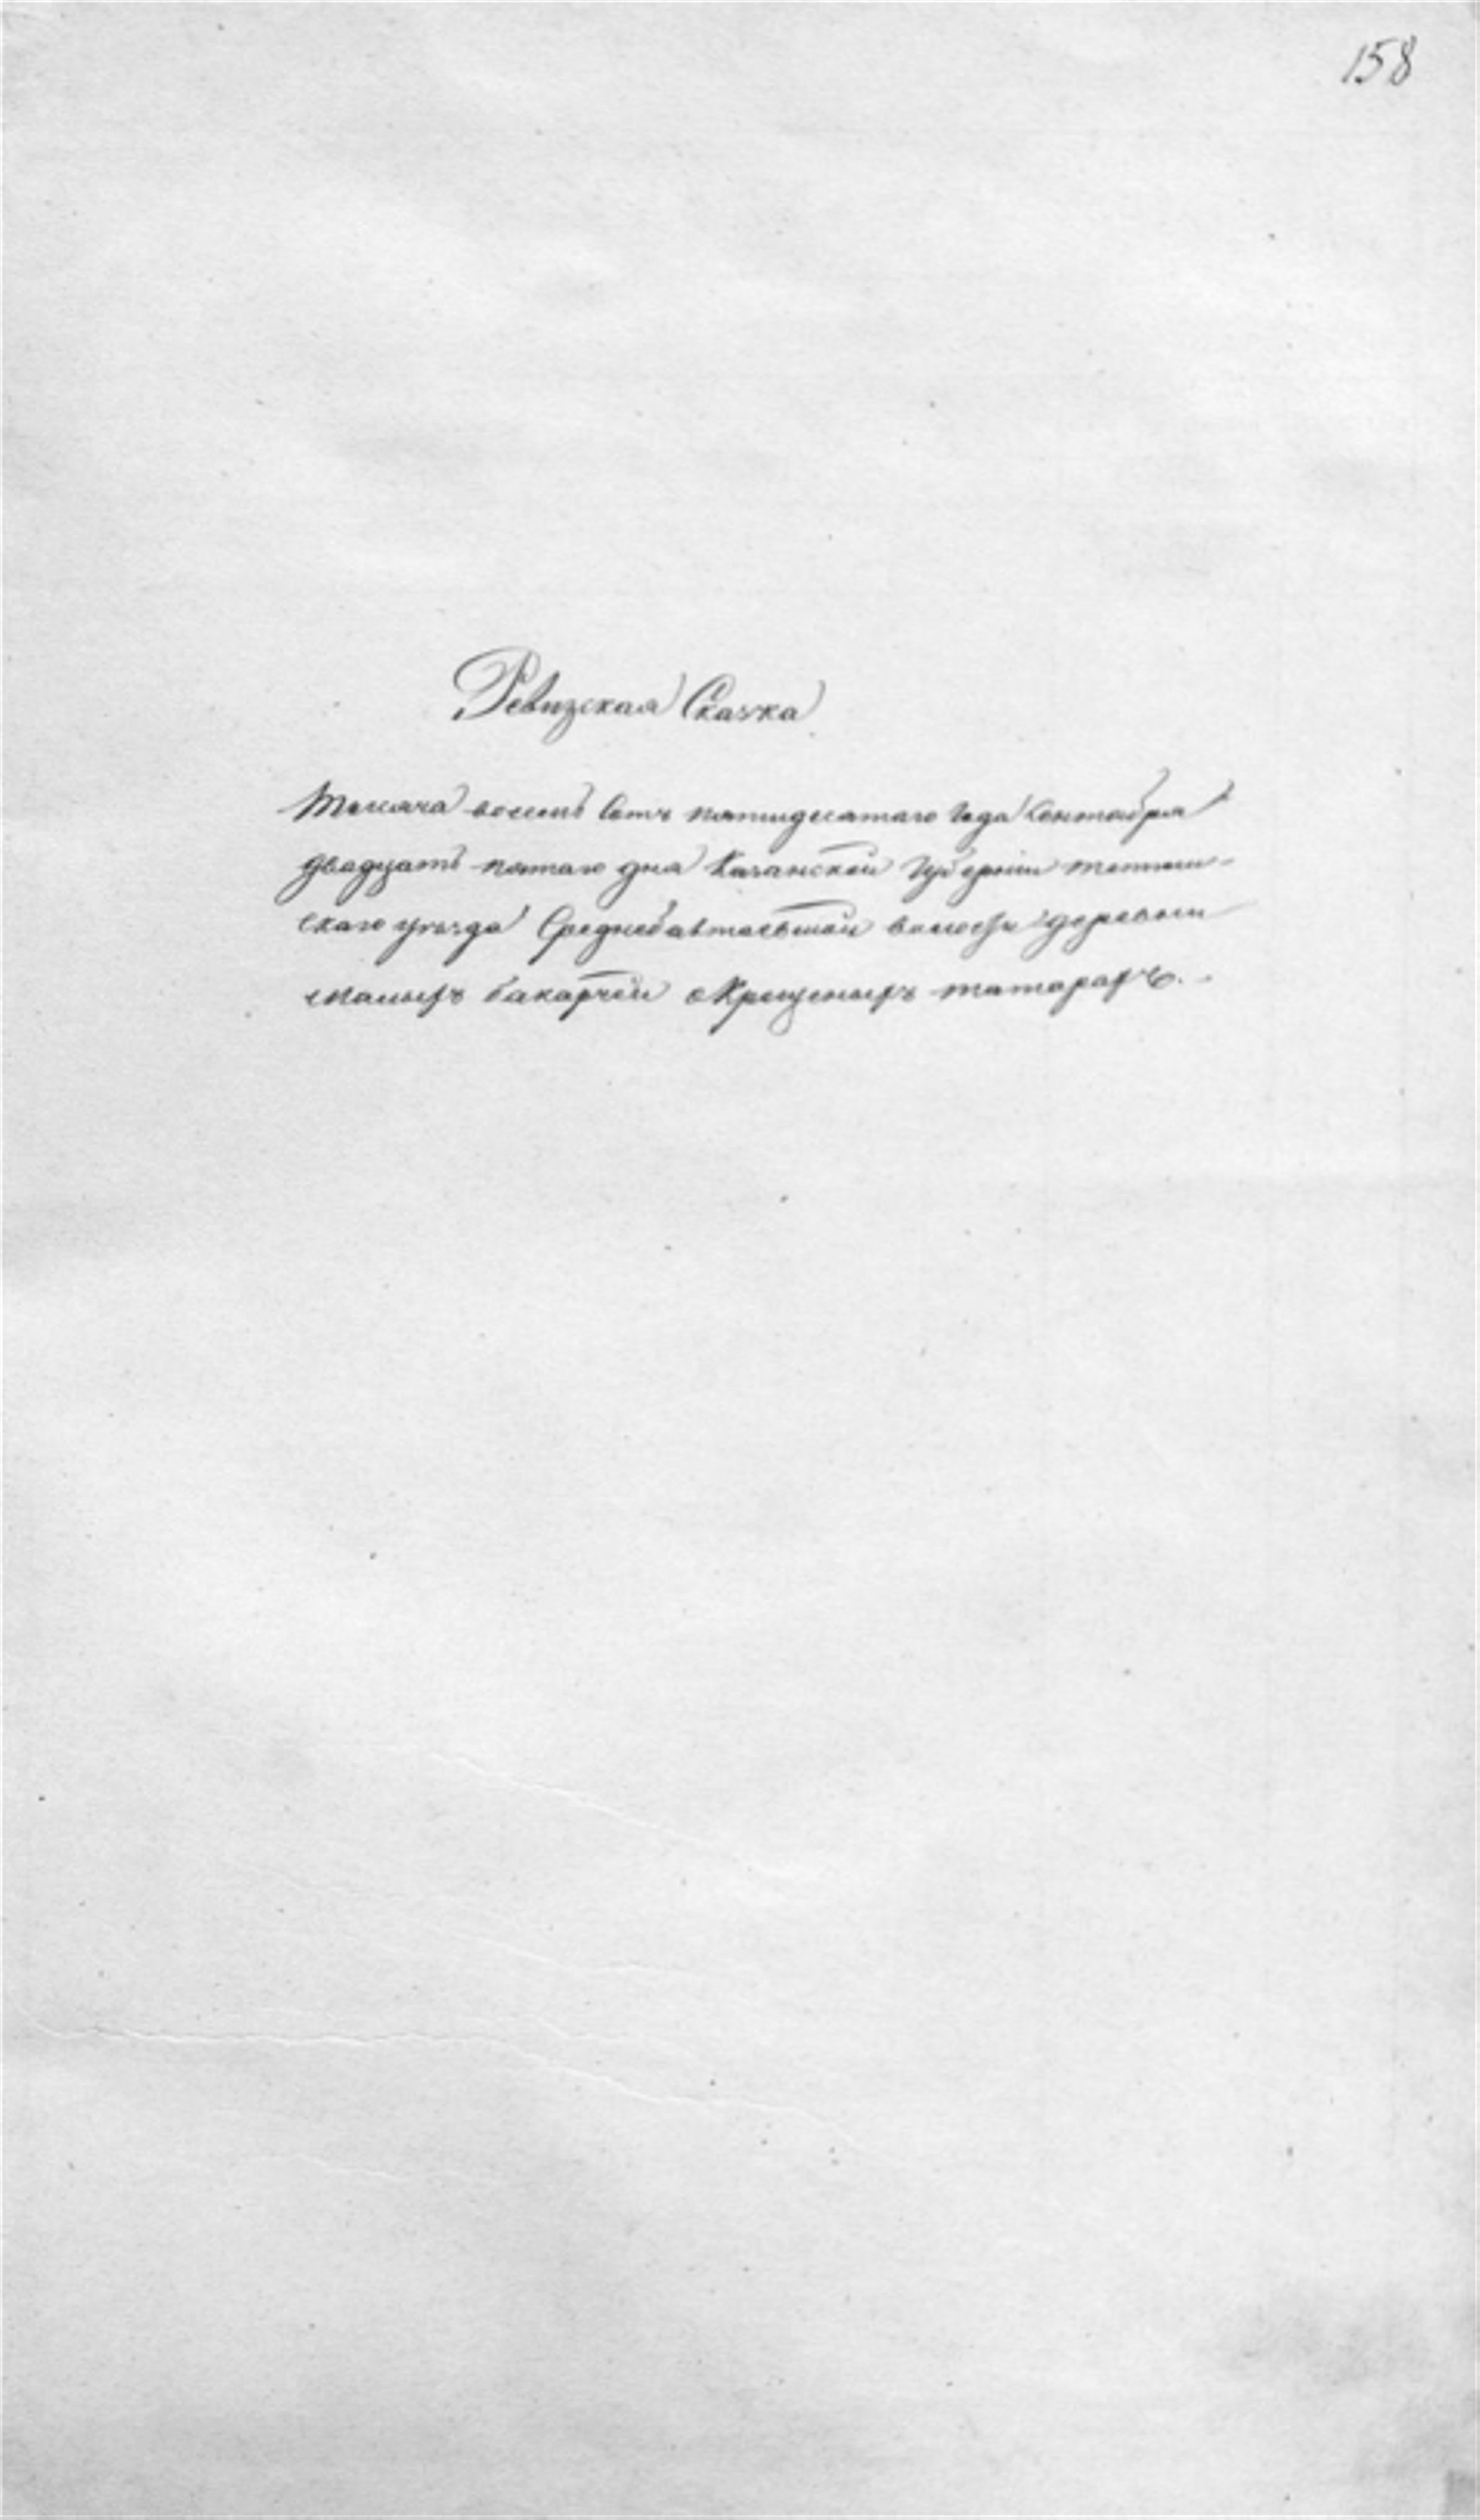 158
Ревизская Сказка
Тысяча восемь Сотъ пятидесятаго Года Сентября
двадцать пятаго дня Казанской Губерніи тетюш-
скаго уѣзда Среднебалтаевской волости деревни
малыхъ бакарчей о Крещеныхъ татарахъ.